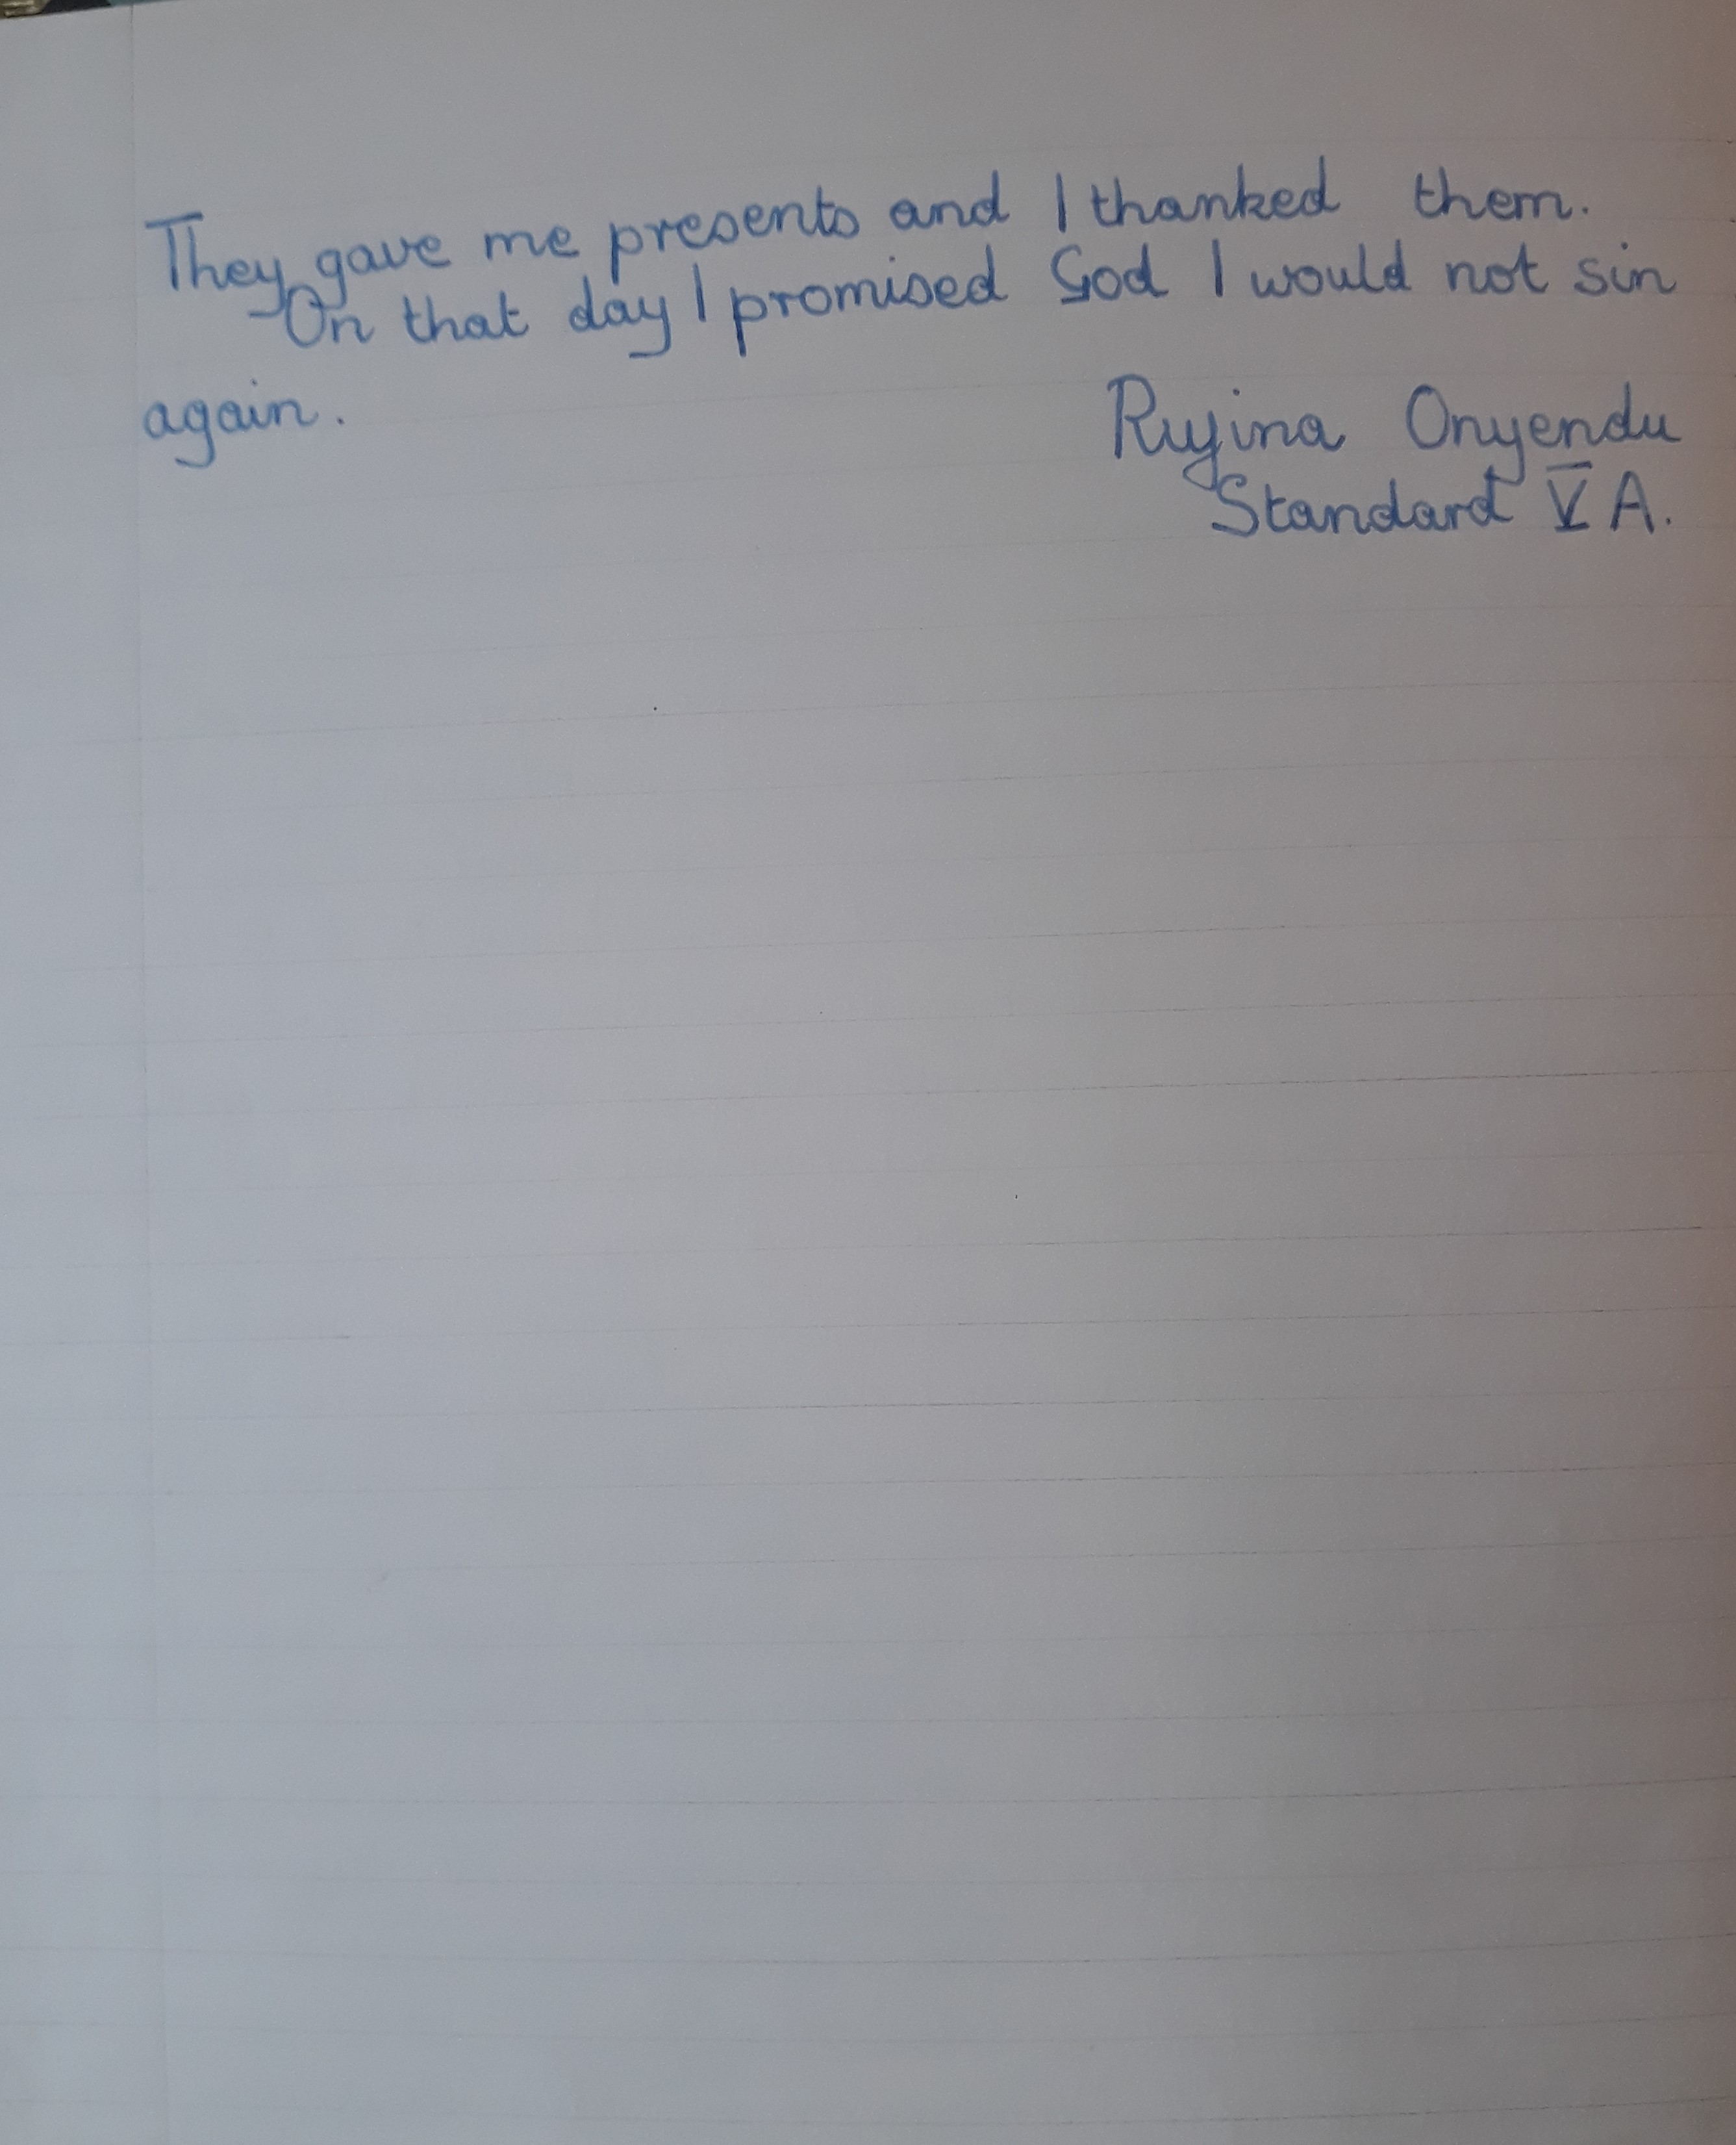 They gave me presents and I thanked them.
On that day I promised God I would not sin
again.
Rujina Onyendu
Standard V A.